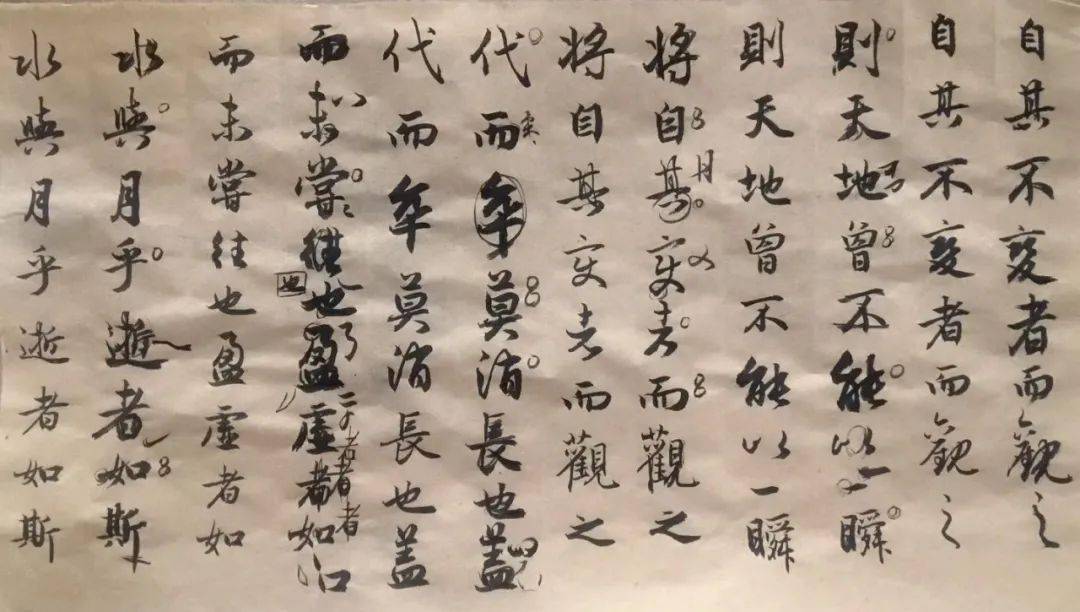 自其不変者而觀之
自其不変者而觀之
則天地曾不能以一瞬
則天地曾不能以一瞬
將自其変者而觀之
將自其変者而觀之
代而卒莫消長也盖
代而卒莫消長也盖
而未嘗往也盈虛者如
也
者者者
而未嘗往也盈虛者如
水與月乎逝者如斯
水與月乎逝者如斯